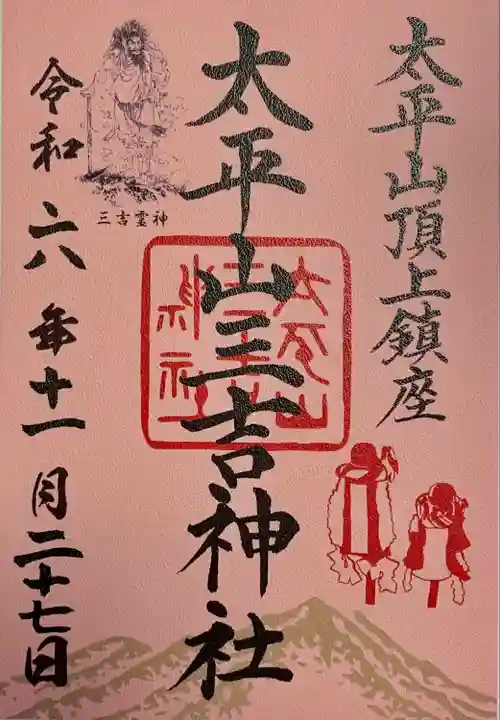 太平山頂上鎮座
太平山三吉神社
三吉霊神
令和六年十一月二十七日